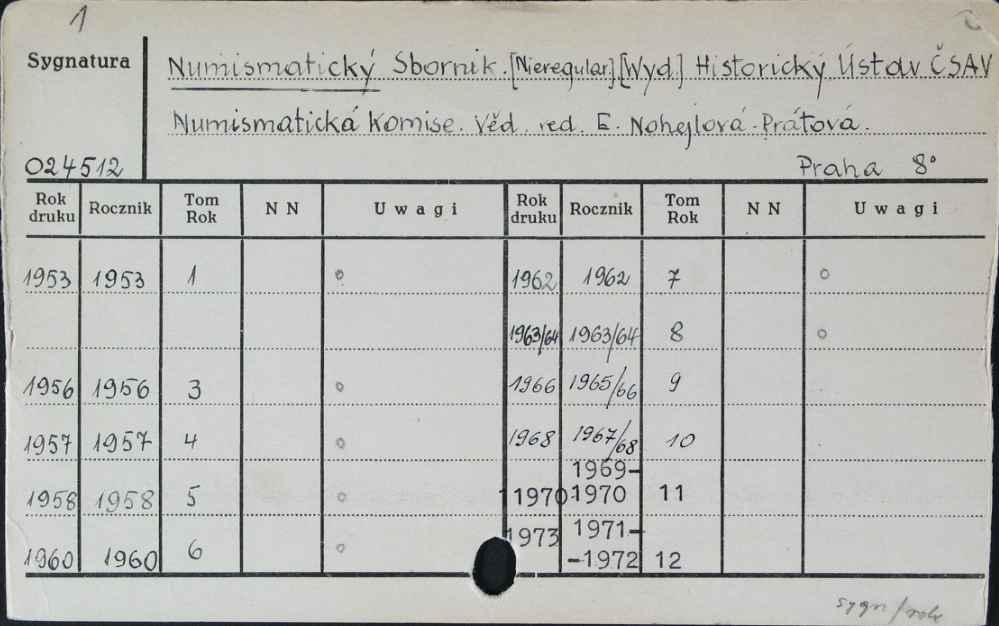 1
Sygnatura
Numismatický Sborník. [Nieregular] [Wyd.] Historický Ústav ČSAV
Numismatická Komise. Věd. red. E. Nohejlová-Prátová.
024512 Praha 8°
Rok druku Rocznik Tom Rok NN Uwagi Rok druku Rocznik Tom Rok NN Uwagi
1953 1953 1 o 1962 1962 7 o
1963/64 1963/64 8 o
1956 1956 3 o 1966 1965/66 9
1957 1957 4 o 1968 1967/68 10
1958 1958 5 o 1970 1969-1970 11
1960 1960 6 o 1973 1971--1972 12
sygn/rok